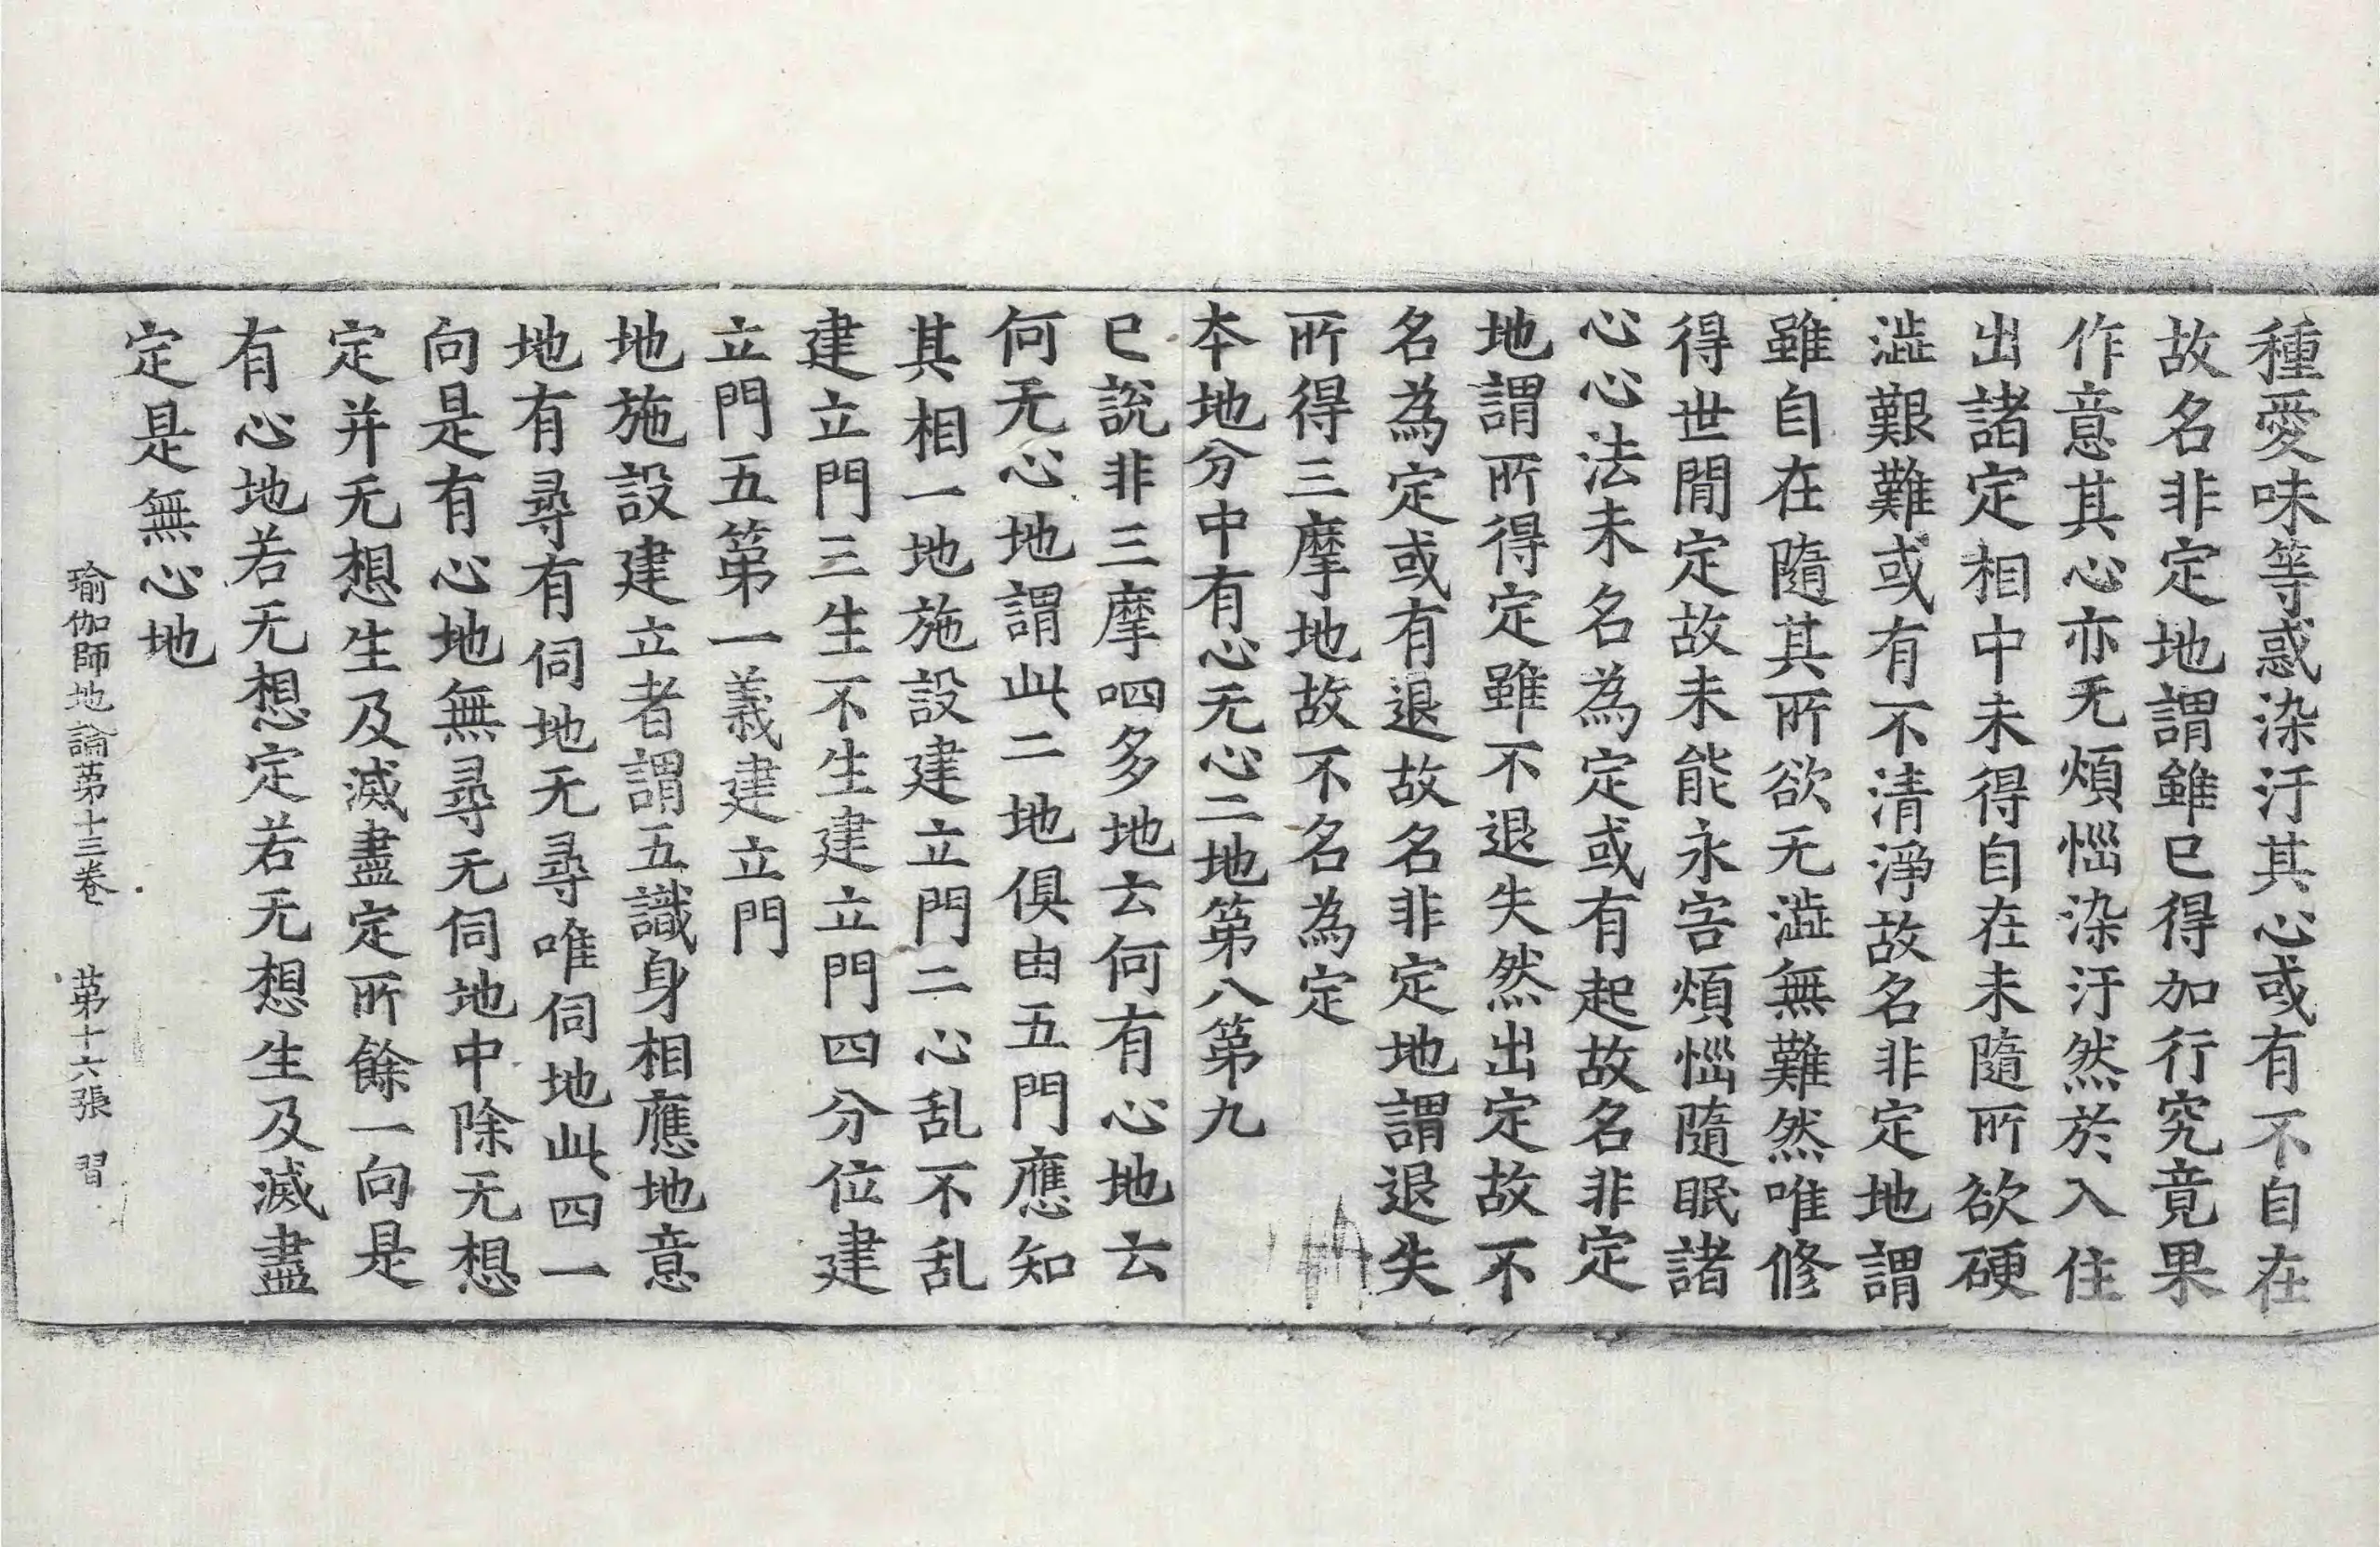 種愛味等惑染汙其心或有不自在
故名非定地謂雖已得加行究竟果
作意其心亦无煩惱染汙然於入住
出諸定相中未得自在未隨所欲硬
澁艱難或有不清淨故名非定地謂
雖自在隨其所欲无澁無難然唯修
得世間定故未能永害煩惱隨眠諸
心心法未名為定或有起故名非定
地謂所得定雖不退失然出定故不
名為定或有退故名非定地謂退失
所得三摩地故不名為定
本地分中有心无心二地第八第九
已說非三摩呬多地云何有心地云
何无心地謂此二地俱由五門應知
其相一地施設建立門二心乱不乱
建立門三生不生建立門四分位建
立門五第一義建立門
地施設建立者謂五識身相應地意
地有尋有伺地无尋唯伺地此四一
向是有心地無尋无伺地中除无想
定并无想生及滅盡定所餘一向是
有心地若无想定若无想生及滅盡
定是無心地
瑜伽師地論苐十三卷 苐十六張 習